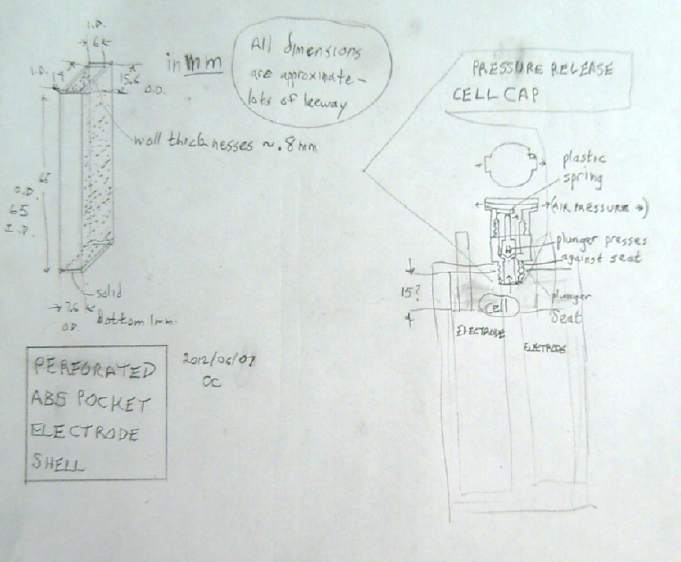 I.D.
6
I.D.
14
15.6
O.D.
in mm
All dimensions
are approximate -
lots of leeway
wall thicknesses ~ .8mm
65
O.D.
65
I.D.
solid
bottom 1mm.
7.6
O.D.
PERFORATED
ABS POCKET
ELECTRODE
SHELL
2012/06/07
OC
PRESSURE RELEASE
CELL CAP
plastic
spring
(AIR PRESSURE →)
plunger presses
against seat
15?
plunger
seat
cell
ELECTRODE
ELECTRODE